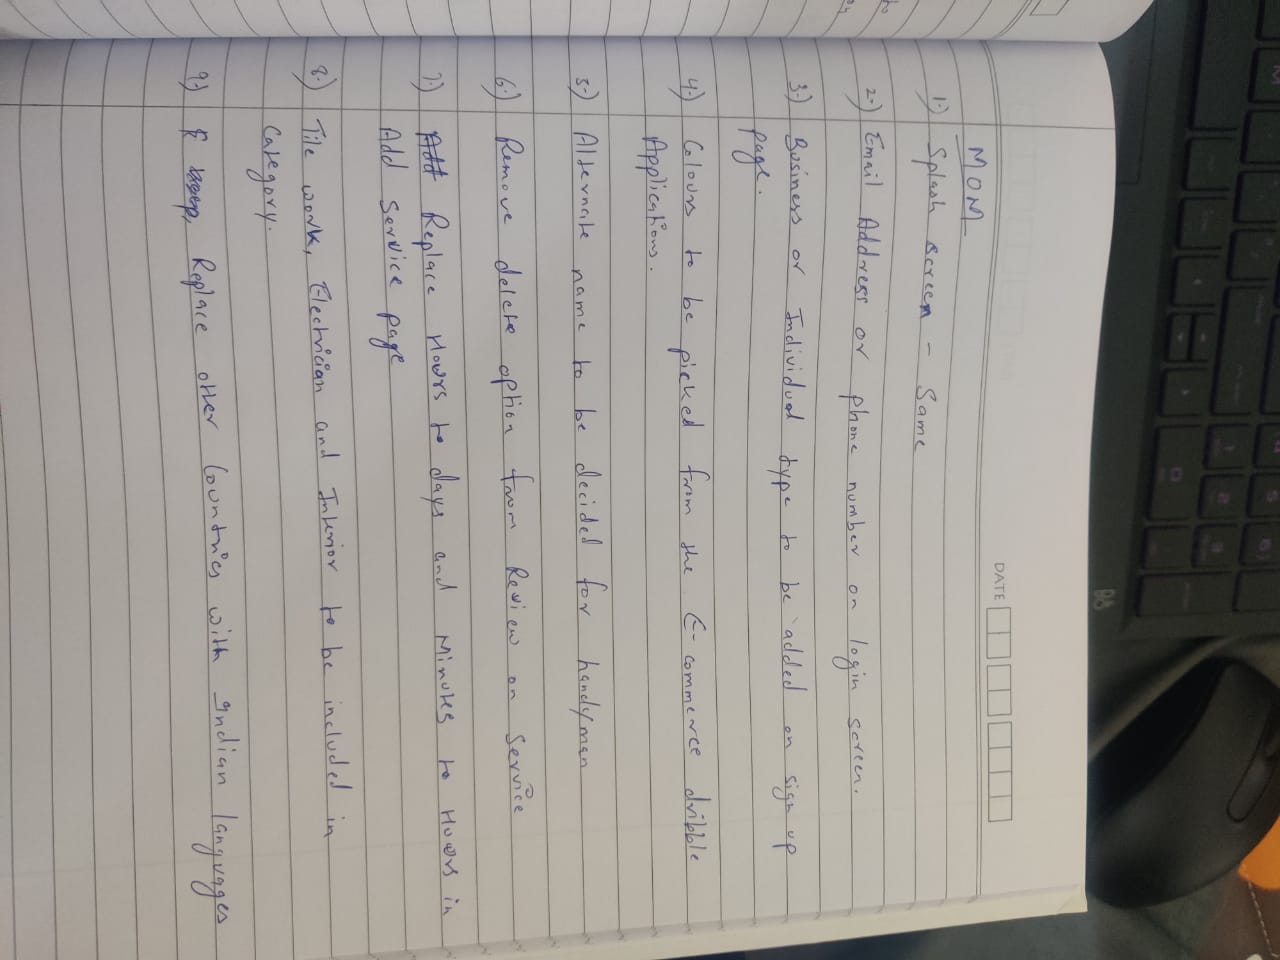 DATE
MOM
1.) Splash screen - Same
2.) Email Address or phone number on login screen.
3.) Business or Individual type to be added on sign up
page.
4.) Colours to be picked from the E-commerce dribble
Applications.
5.) Alternate name to be decided for handyman
6.) Remove delete option from Review on Service
7.) Replace Hours to days and Minutes to Hours in
Add Service page
8.) Tile work, Electrician and Interior to be included in
Category.
9.) Replace other Countries with Indian languages